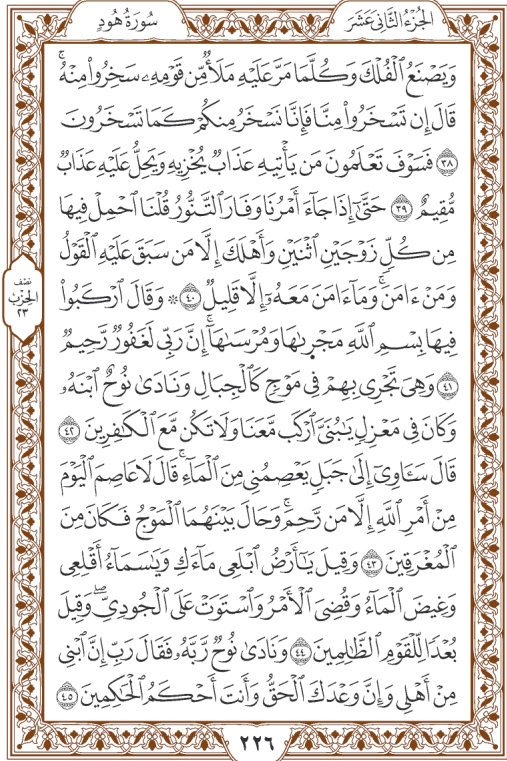 الجُزْءُ الثَّانِي عَشَرَ
سُورَةُ هُودٍ
وَيَصْنَعُ ٱلْفُلْكَ وَكُلَّمَا مَرَّ عَلَيْهِ مَلَأٌ مِّن قَوْمِهِۦ سَخِرُواْ مِنْهُۚ
قَالَ إِن تَسْخَرُواْ مِنَّا فَإِنَّا نَسْخَرُ مِنكُمْ كَمَا تَسْخَرُونَ
٣٨ فَسَوْفَ تَعْلَمُونَ مَن يَأْتِيهِ عَذَابٌ يُخْزِيهِ وَيَحِلُّ عَلَيْهِ عَذَابٌ
مُّقِيمٌ ٣٩ حَتَّىٰٓ إِذَا جَآءَ أَمْرُنَا وَفَارَ ٱلتَّنُّورُ قُلْنَا ٱحْمِلْ فِيهَا
مِن كُلٍّ زَوْجَيْنِ ٱثْنَيْنِ وَأَهْلَكَ إِلَّا مَن سَبَقَ عَلَيْهِ ٱلْقَوْلُ
وَمَنْ ءَامَنَۚ وَمَآ ءَامَنَ مَعَهُۥٓ إِلَّا قَلِيلٌ ٤٠ ۞ وَقَالَ ٱرْكَبُواْ
فِيهَا بِسْمِ ٱللَّهِ مَجْر۪ىٰهَا وَمُرْسَىٰهَآۚ إِنَّ رَبِّي لَغَفُورٌ رَّحِيمٌ
٤١ وَهِيَ تَجْرِي بِهِمْ فِي مَوْجٍ كَٱلْجِبَالِ وَنَادَىٰ نُوحٌ ٱبْنَهُۥ
وَكَانَ فِي مَعْزِلٍ يَٰبُنَيَّ ٱرْكَب مَّعَنَا وَلَا تَكُن مَّعَ ٱلْكَٰفِرِينَ ٤٢
قَالَ سَـَٔاوِيٓ إِلَىٰ جَبَلٍ يَعْصِمُنِي مِنَ ٱلْمَآءِۚ قَالَ لَا عَاصِمَ ٱلْيَوْمَ
مِنْ أَمْرِ ٱللَّهِ إِلَّا مَن رَّحِمَۚ وَحَالَ بَيْنَهُمَا ٱلْمَوْجُ فَكَانَ مِنَ
ٱلْمُغْرَقِينَ ٤٣ وَقِيلَ يَٰٓأَرْضُ ٱبْلَعِي مَآءَكِ وَيَٰسَمَآءُ أَقْلِعِي
وَغِيضَ ٱلْمَآءُ وَقُضِيَ ٱلْأَمْرُ وَٱسْتَوَتْ عَلَى ٱلْجُودِيِّۖ وَقِيلَ
بُعْدًا لِّلْقَوْمِ ٱلظَّٰلِمِينَ ٤٤ وَنَادَىٰ نُوحٌ رَّبَّهُۥ فَقَالَ رَبِّ إِنَّ ٱبْنِي
مِنْ أَهْلِي وَإِنَّ وَعْدَكَ ٱلْحَقُّ وَأَنتَ أَحْكَمُ ٱلْحَٰكِمِينَ ٤٥
نصف
الحزب
٢٣
٢٢٦